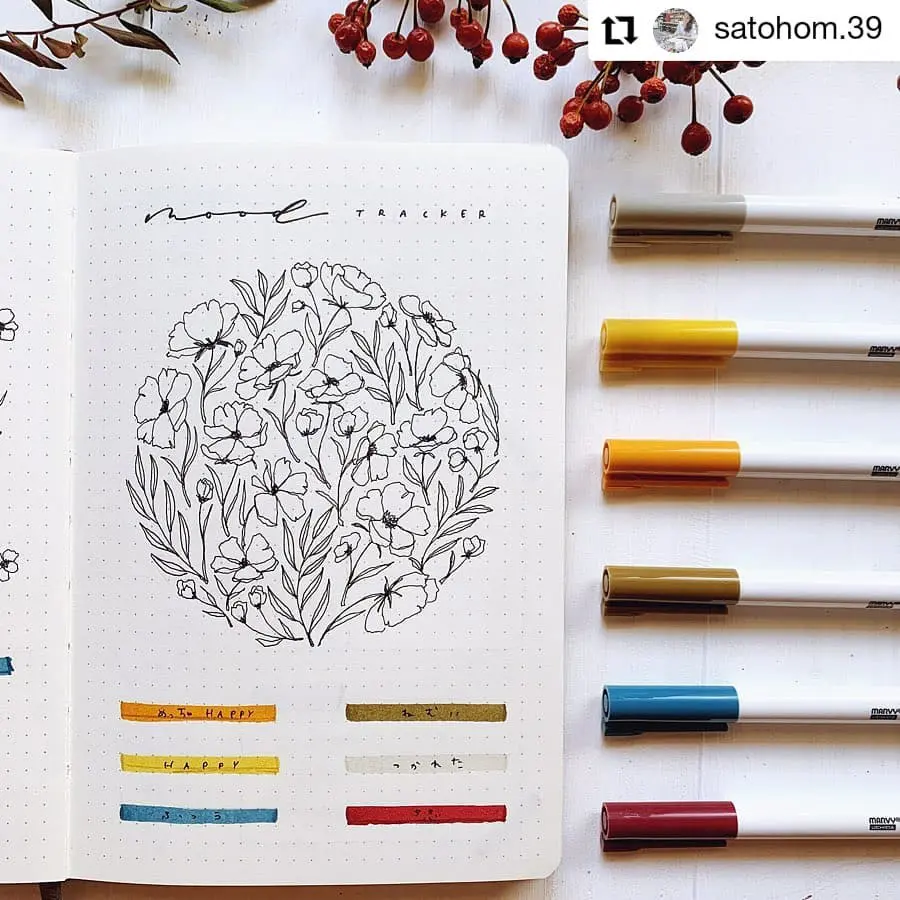 satohom.39
mood TRACKER
めっちゃ HAPPY
HAPPY
ふつう
ねむい
つかれた
MARVY
MARVY
MARVY
MARVY
MARVY
MARVY